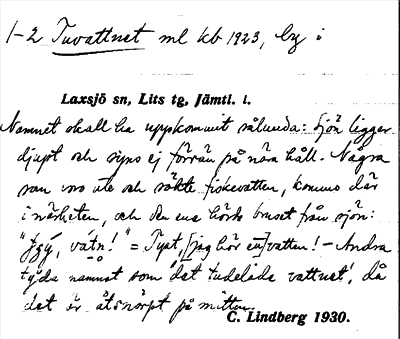 1-2 Tuvattnet ml kb 1923, by i
Laxsjö sn, Lits tg, Jämtl. l.
Namnet skall ha uppkommit sålunda: Sjön ligger
djupt och syns ej förrän på nära håll. Några
som vro ute och sökte fiskevatten, kommo där
i närheten, och den ene hörde bruset från sjön:
vátn!" = Tyst, [jag hör en] vatten! - Andra
tyda namnet som 'det tudelade vattnet', då
det är åtsnörpt på mitten.
C. Lindberg 1930.